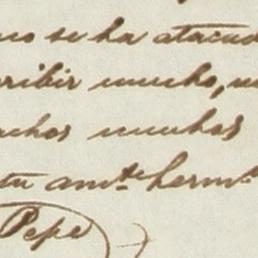 no se ha atacad
ribir mucho, m
uchos muchos
tu amte herma
Pepe